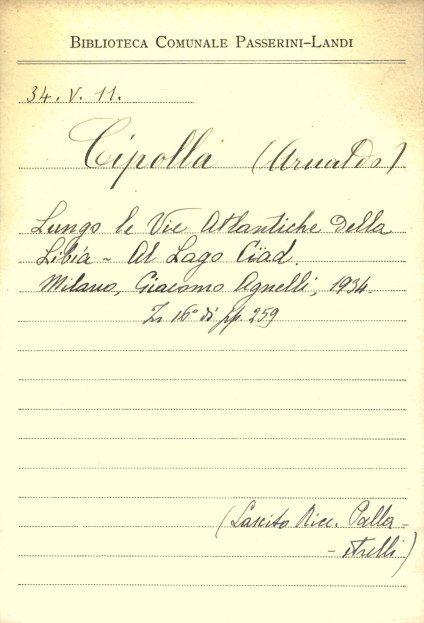 BIBLIOTECA COMUNALE PASSERINI-LANDI
34. V. 11.
Cipolla (Arnaldo)
Lungo le Vie Atlantiche della
Libia - Al Lago Ciad.
Milano, Giacomo Agnelli, 1934.
In 16° di pp. 259
(Lascito Ricc. Palla-
- strelli)